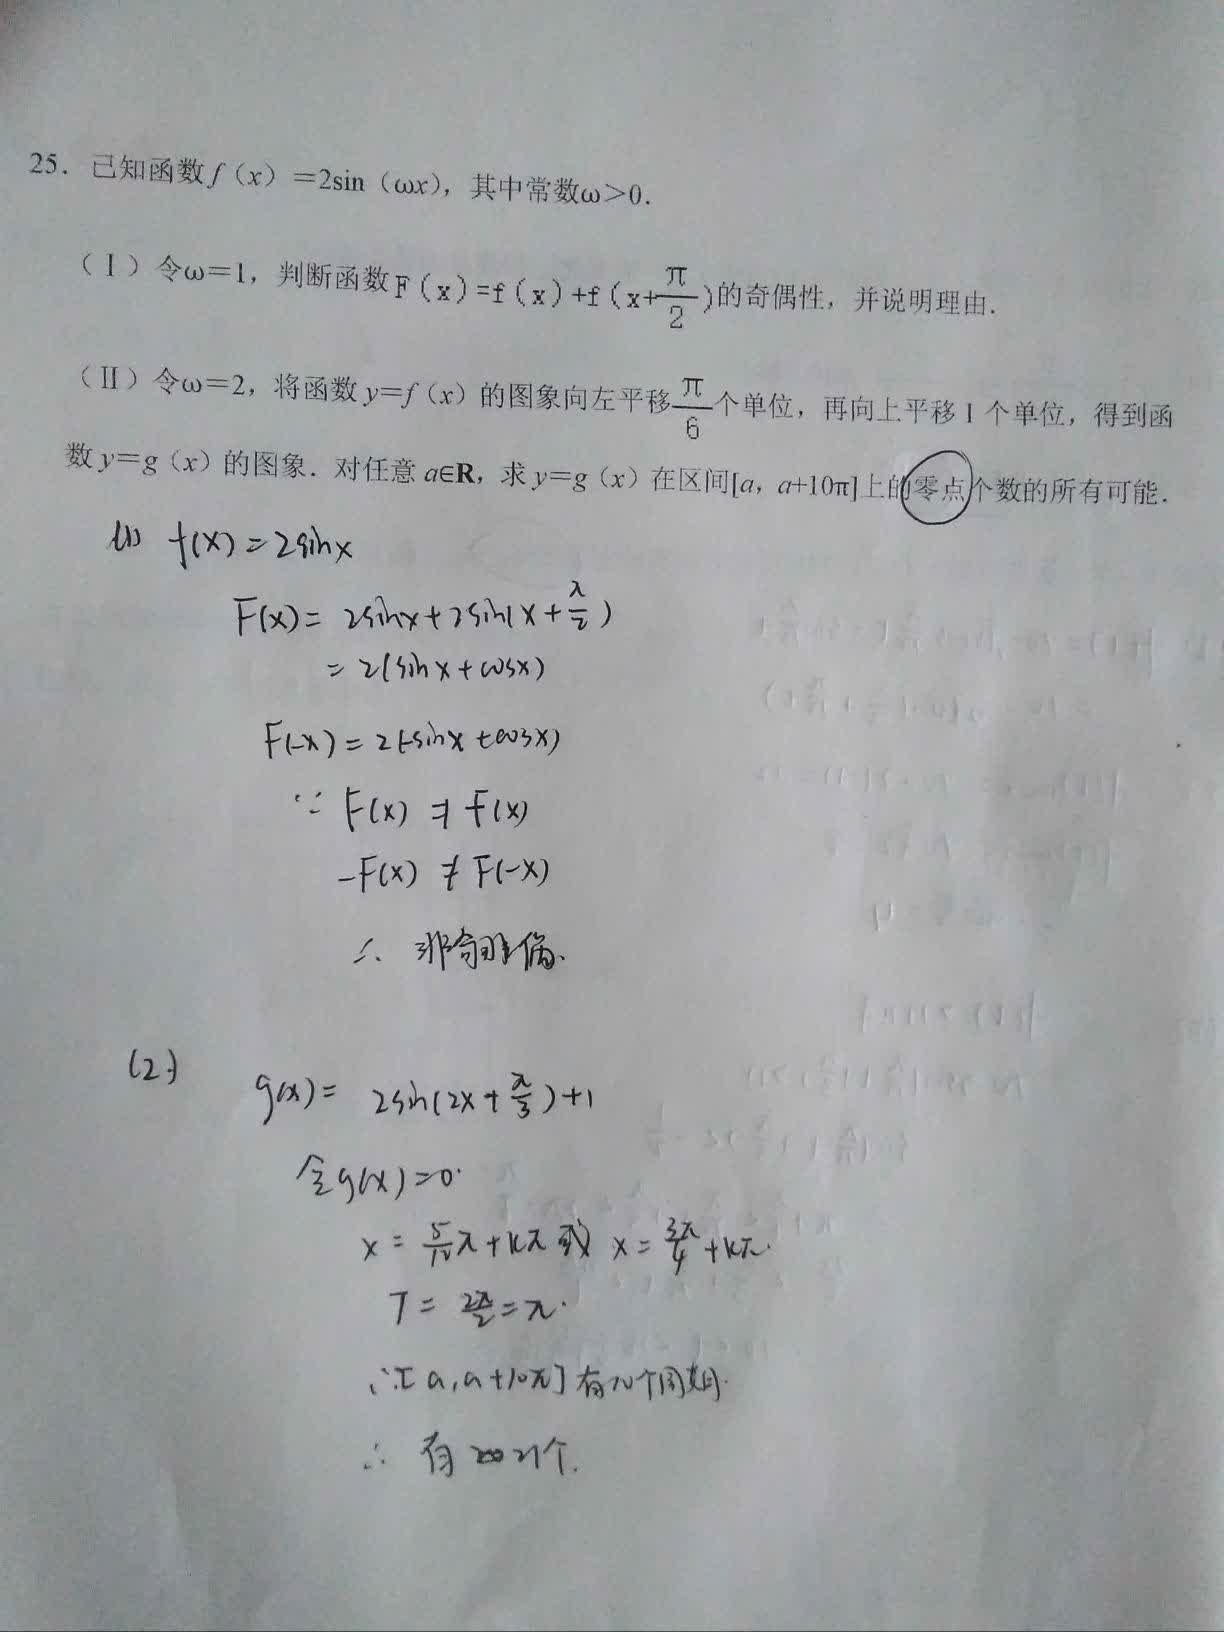 25．已知函数f（x）＝2sin（ωx），其中常数ω＞0．
（Ⅰ）令ω＝1，判断函数F(x)=f(x)+f(x+π/2)的奇偶性，并说明理由．
（Ⅱ）令ω＝2，将函数y＝f（x）的图象向左平移π/6个单位，再向上平移1个单位，得到函
数y＝g（x）的图象．对任意a∈R，求y＝g（x）在区间[a，a+10π]上的零点个数的所有可能．
(1) f(x)=2sinx
F(x)= 2sinx+2sin(x+π/2)
= 2(sinx+cosx)
F(-x)=2(-sinx+cosx)
∵ F(x) ≠ F(x)
-F(x) ≠ F(-x)
∴ 非奇非偶.
(2.)
g(x)= 2sin(2x+π/3)+1
令g(x)=0.
x= 5/12π+kπ 或 x= 3π/4+kπ.
T= 2π/2=π.
∴[a,a+10π]有10个周期.
∴ 有 21个.